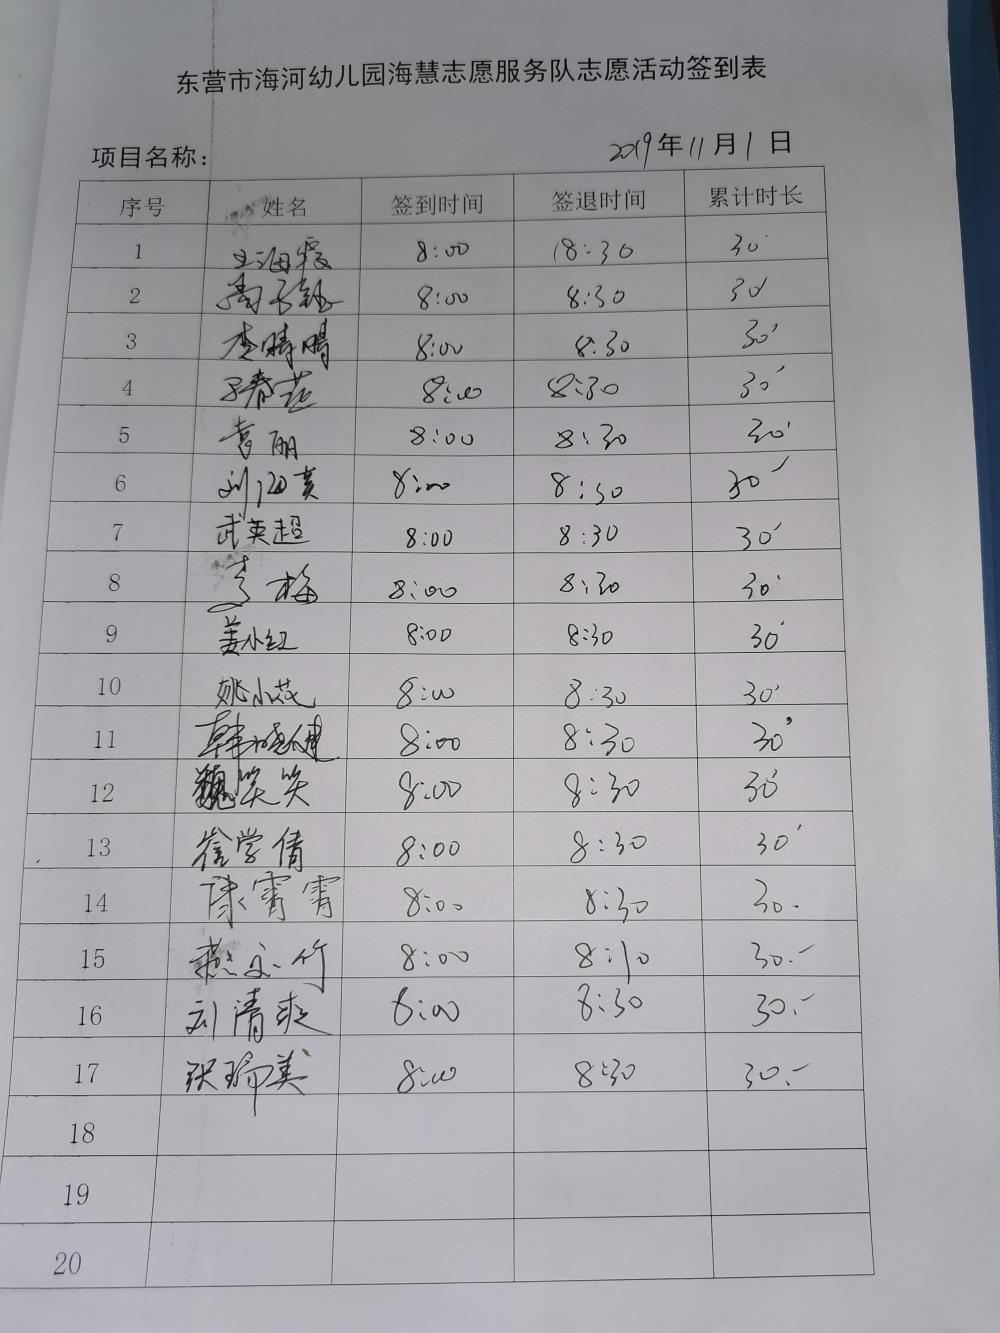 东营市海河幼儿园海慧志愿服务队志愿活动签到表
项目名称： 2019年11月1日
序号 姓名 签到时间 签退时间 累计时长
1 王海霞 8:00 18:30 30'
2 8:00 8:30 30'
3 李晴晴 8:00 8:30 30'
4 8:00 8:30 30'
5 袁丽 8:00 8:30 30'
6 刘海英 8:00 8:30 30'
7 武英超 8:00 8:30 30'
8 李梅 8:00 8:30 30'
9 姜小红 8:00 8:30 30'
10 姚小花 8:00 8:30 30'
11 韩晓健 8:00 8:30 30'
12 魏笑笑 8:00 8:30 30'
13 徐学倩 8:00 8:30 30'
14 陈霄霄 8:00 8:30 30.
15 燕文竹 8:00 8:10 30.-
16 刘清爽 8:00 8:30 30.-
17 张瑞美 8:00 8:30 30.-
18
19
20